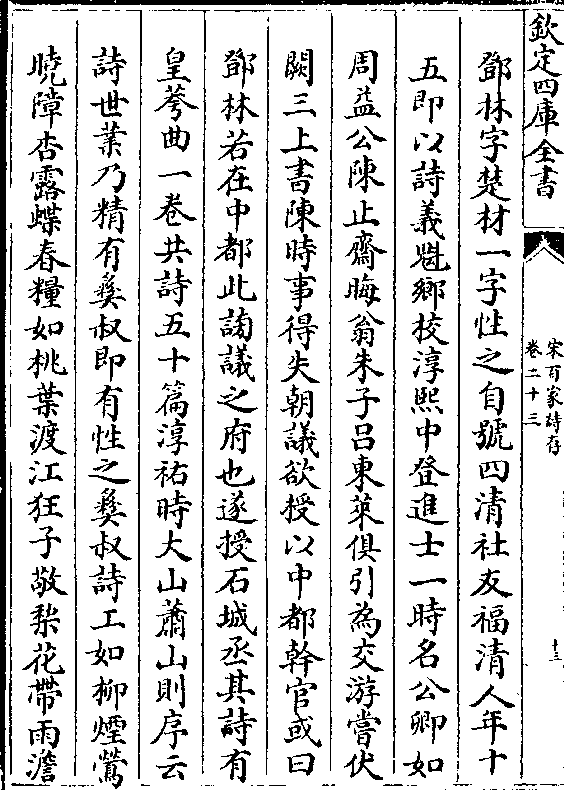 欽定四庫全書
宋百家詩存
卷二十三
十三
鄧林字楚材一字性之自號四清社友福清人年十
五即以詩義魁鄉校淳熙中登進士一時名公卿如
周益公陳止齋晦翁朱子呂東萊俱引為交游嘗伏
闕三上書陳時事得失朝議欲授以中都幹官或曰
鄧林若在中都此謅議之府也遂授石城丞其詩有
皇荂曲一卷共詩五十篇淳祐時大山蕭山則序云
詩世業乃精有彝叔即有性之彝叔詩工如柳煙鶯
曉障杏露蝶春糧如桃葉渡江狂子敬梨花帶雨澹